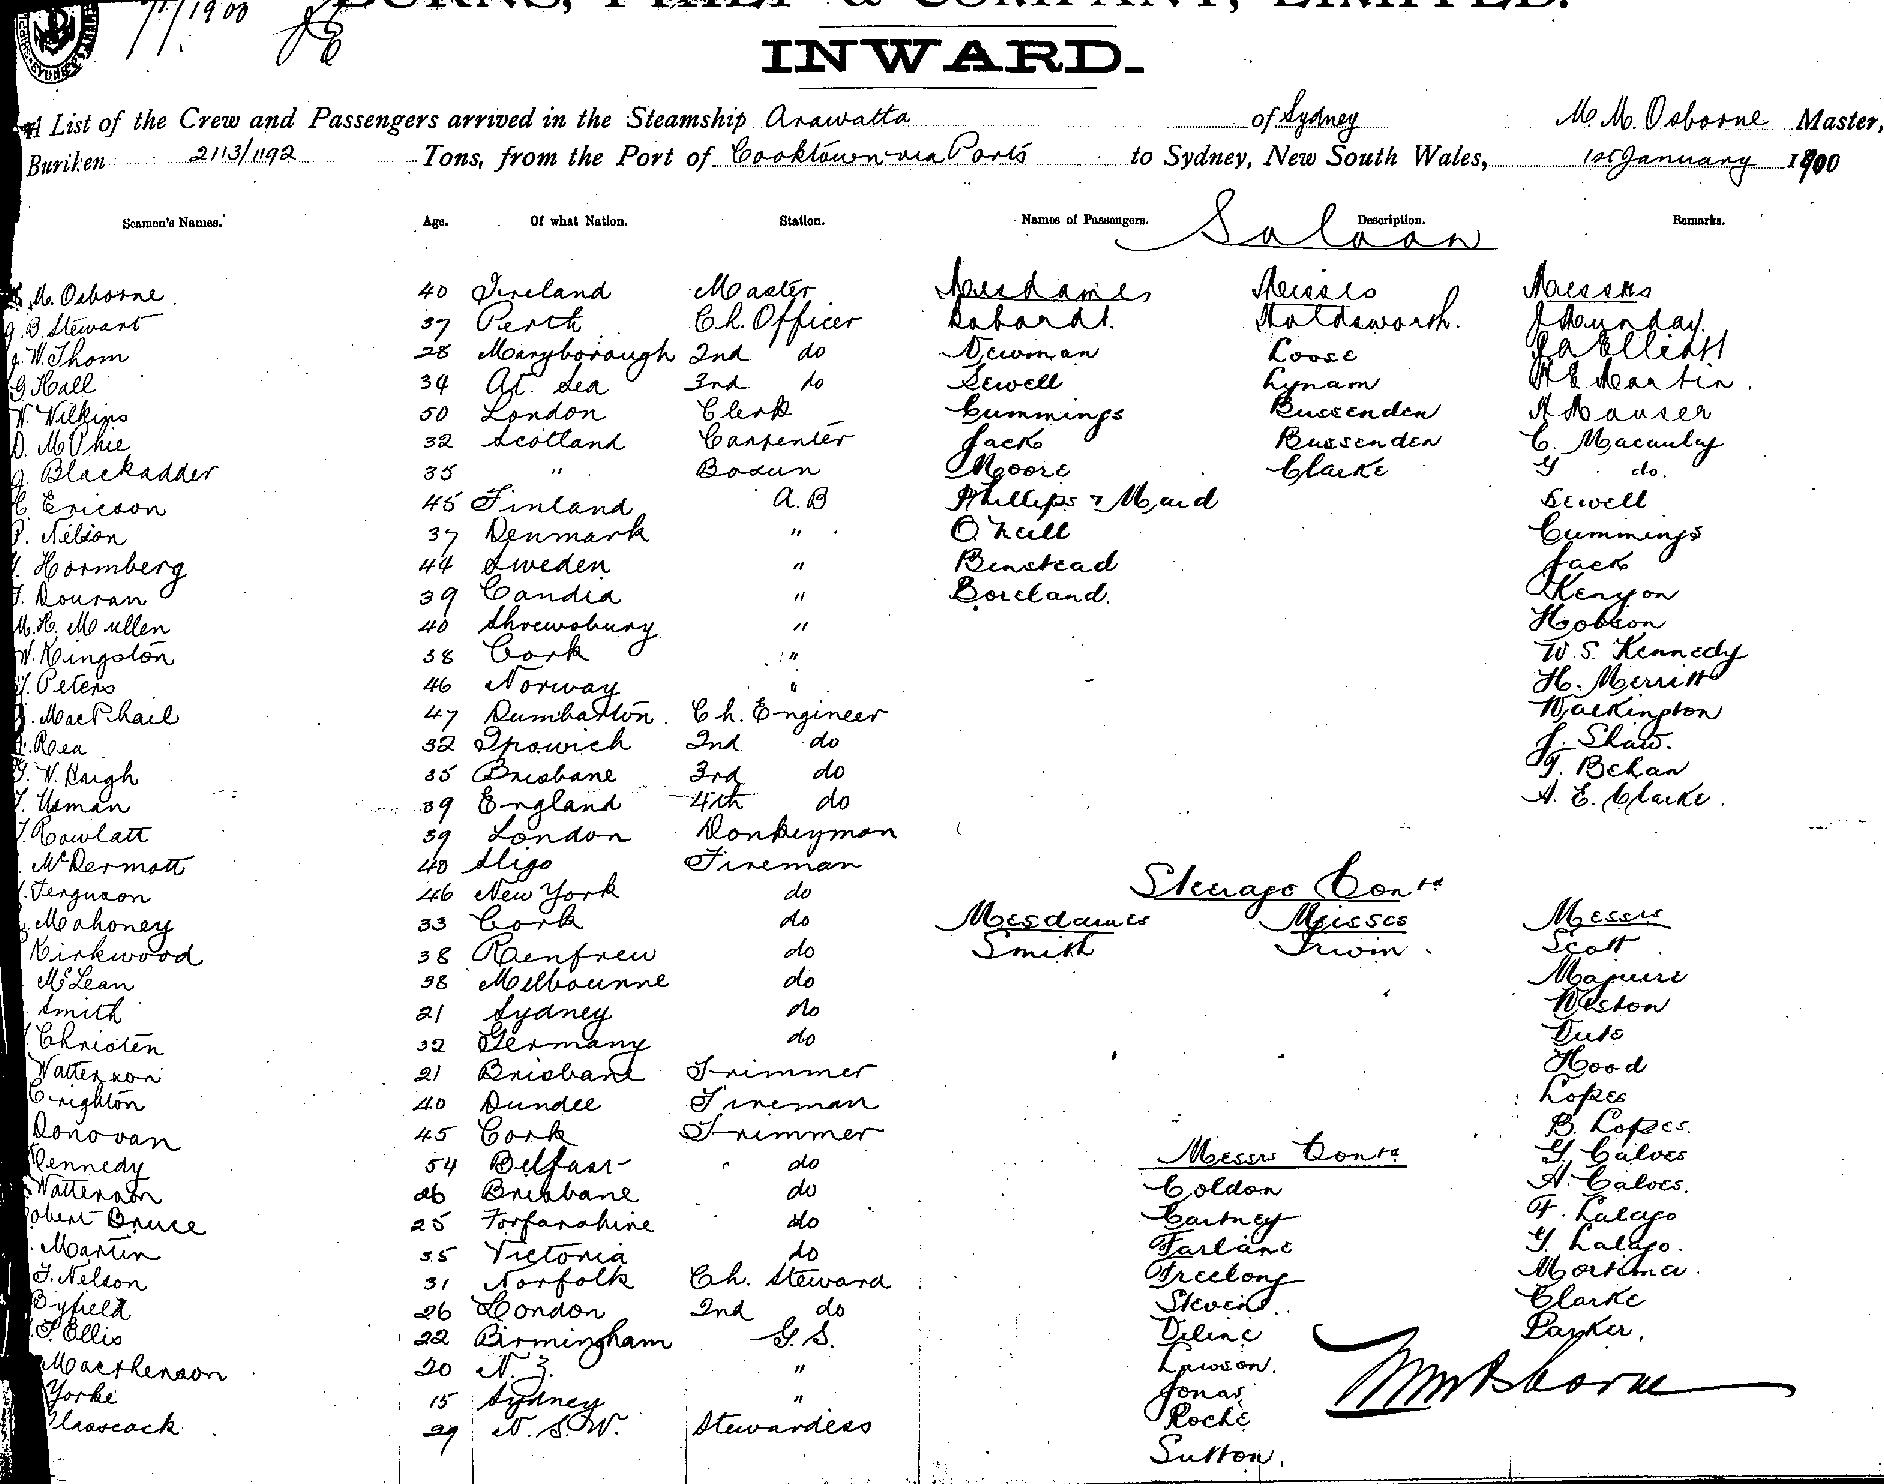 1/1/1900
BURNS, PHILP & COMPANY, LIMITED.
INWARD.
A List of the Crew and Passengers arrived in the Steamship Arawatta of Sydney M. M. Osborne Master,
Burthen 2113/1192 Tons, from the Port of Cooktown via Ports to Sydney, New South Wales, 1st January 1900
Seamen's Names. Age. Of what Nation. Station. Names of Passengers. Description. Remarks.
Saloon
M. Osborne 40 Ireland Master Mesdames Misses Messrs
J. B. Stewart 37 Perth Ch. Officer Holdsworth. J Munday
W. Thom 28 Maryborough 2nd do Newman Loose J A Elliott
G Hall 34 At Sea 3rd do Sewell Lynam H E Martin
W. Wilkins 50 London Clerk Cummings Bussenden A Mauser
D. McPhie 32 Scotland Carpenter Jack Bussenden C. Macaulay
Blackadder 35 " Bosun Moore Clarke G do.
C. Ericson 45 Finland A.B Phillips & Maid Sewell
P. Nelson 37 Denmark " O'Neill Cummings
Hormberg 44 Sweden " Binstead Jack
Douran 39 Candia " Boreland. Kenyon
M. H. Mullen 40 Shrewsbury " Hobson
W. Kingston 38 Cork " W. S. Kennedy
Peters 46 Norway " H. Merritt
MacPhail 47 Dumbarton. Ch. Engineer Walkington
Rea 32 Ipswich 2nd do J. Shaw.
W. Haigh 35 Brisbane 3rd do T. Behan
Usman 39 England 4th do A. E. Clarke.
Rowlatt 39 London Donkeyman
McDermott 40 Sligo Fireman
Steerage Contd
Ferguson 46 New York do
Mahoney 33 Cork do Mesdames Misses Messrs
Kirkwood 38 Renfrew do Smith Irwin Scott
McLean 38 Melbourne do Maguire
Smith 21 Sydney do Weston
Christen 32 Germany do
Watterson 21 Brisbane Trimmer Hood
Crighton 40 Dundee Fireman Lopes
Donovan 45 Cork Trimmer B. Lopes.
Messrs Contd
Kennedy 54 Belfast do G. Calves
Watterson 26 Brisbane do Coldon A. Calves.
Robert Bruce 25 Forfarshire do Cartney F. Lalago
Martin 35 Victoria do Farlane G. Lalago.
T. Nelson 31 Norfolk Ch. Steward Freelong Mortimer.
Byfield 26 London 2nd do Stevens. Clarke
T. Ellis 22 Birmingham G.S. Deline Parker.
Macphenson 20 N. Z. " Lawson.
Yorke 15 Sydney " Jonas
29 N. S. W. Stewardess Roche
Sutton.
Wm Osborne